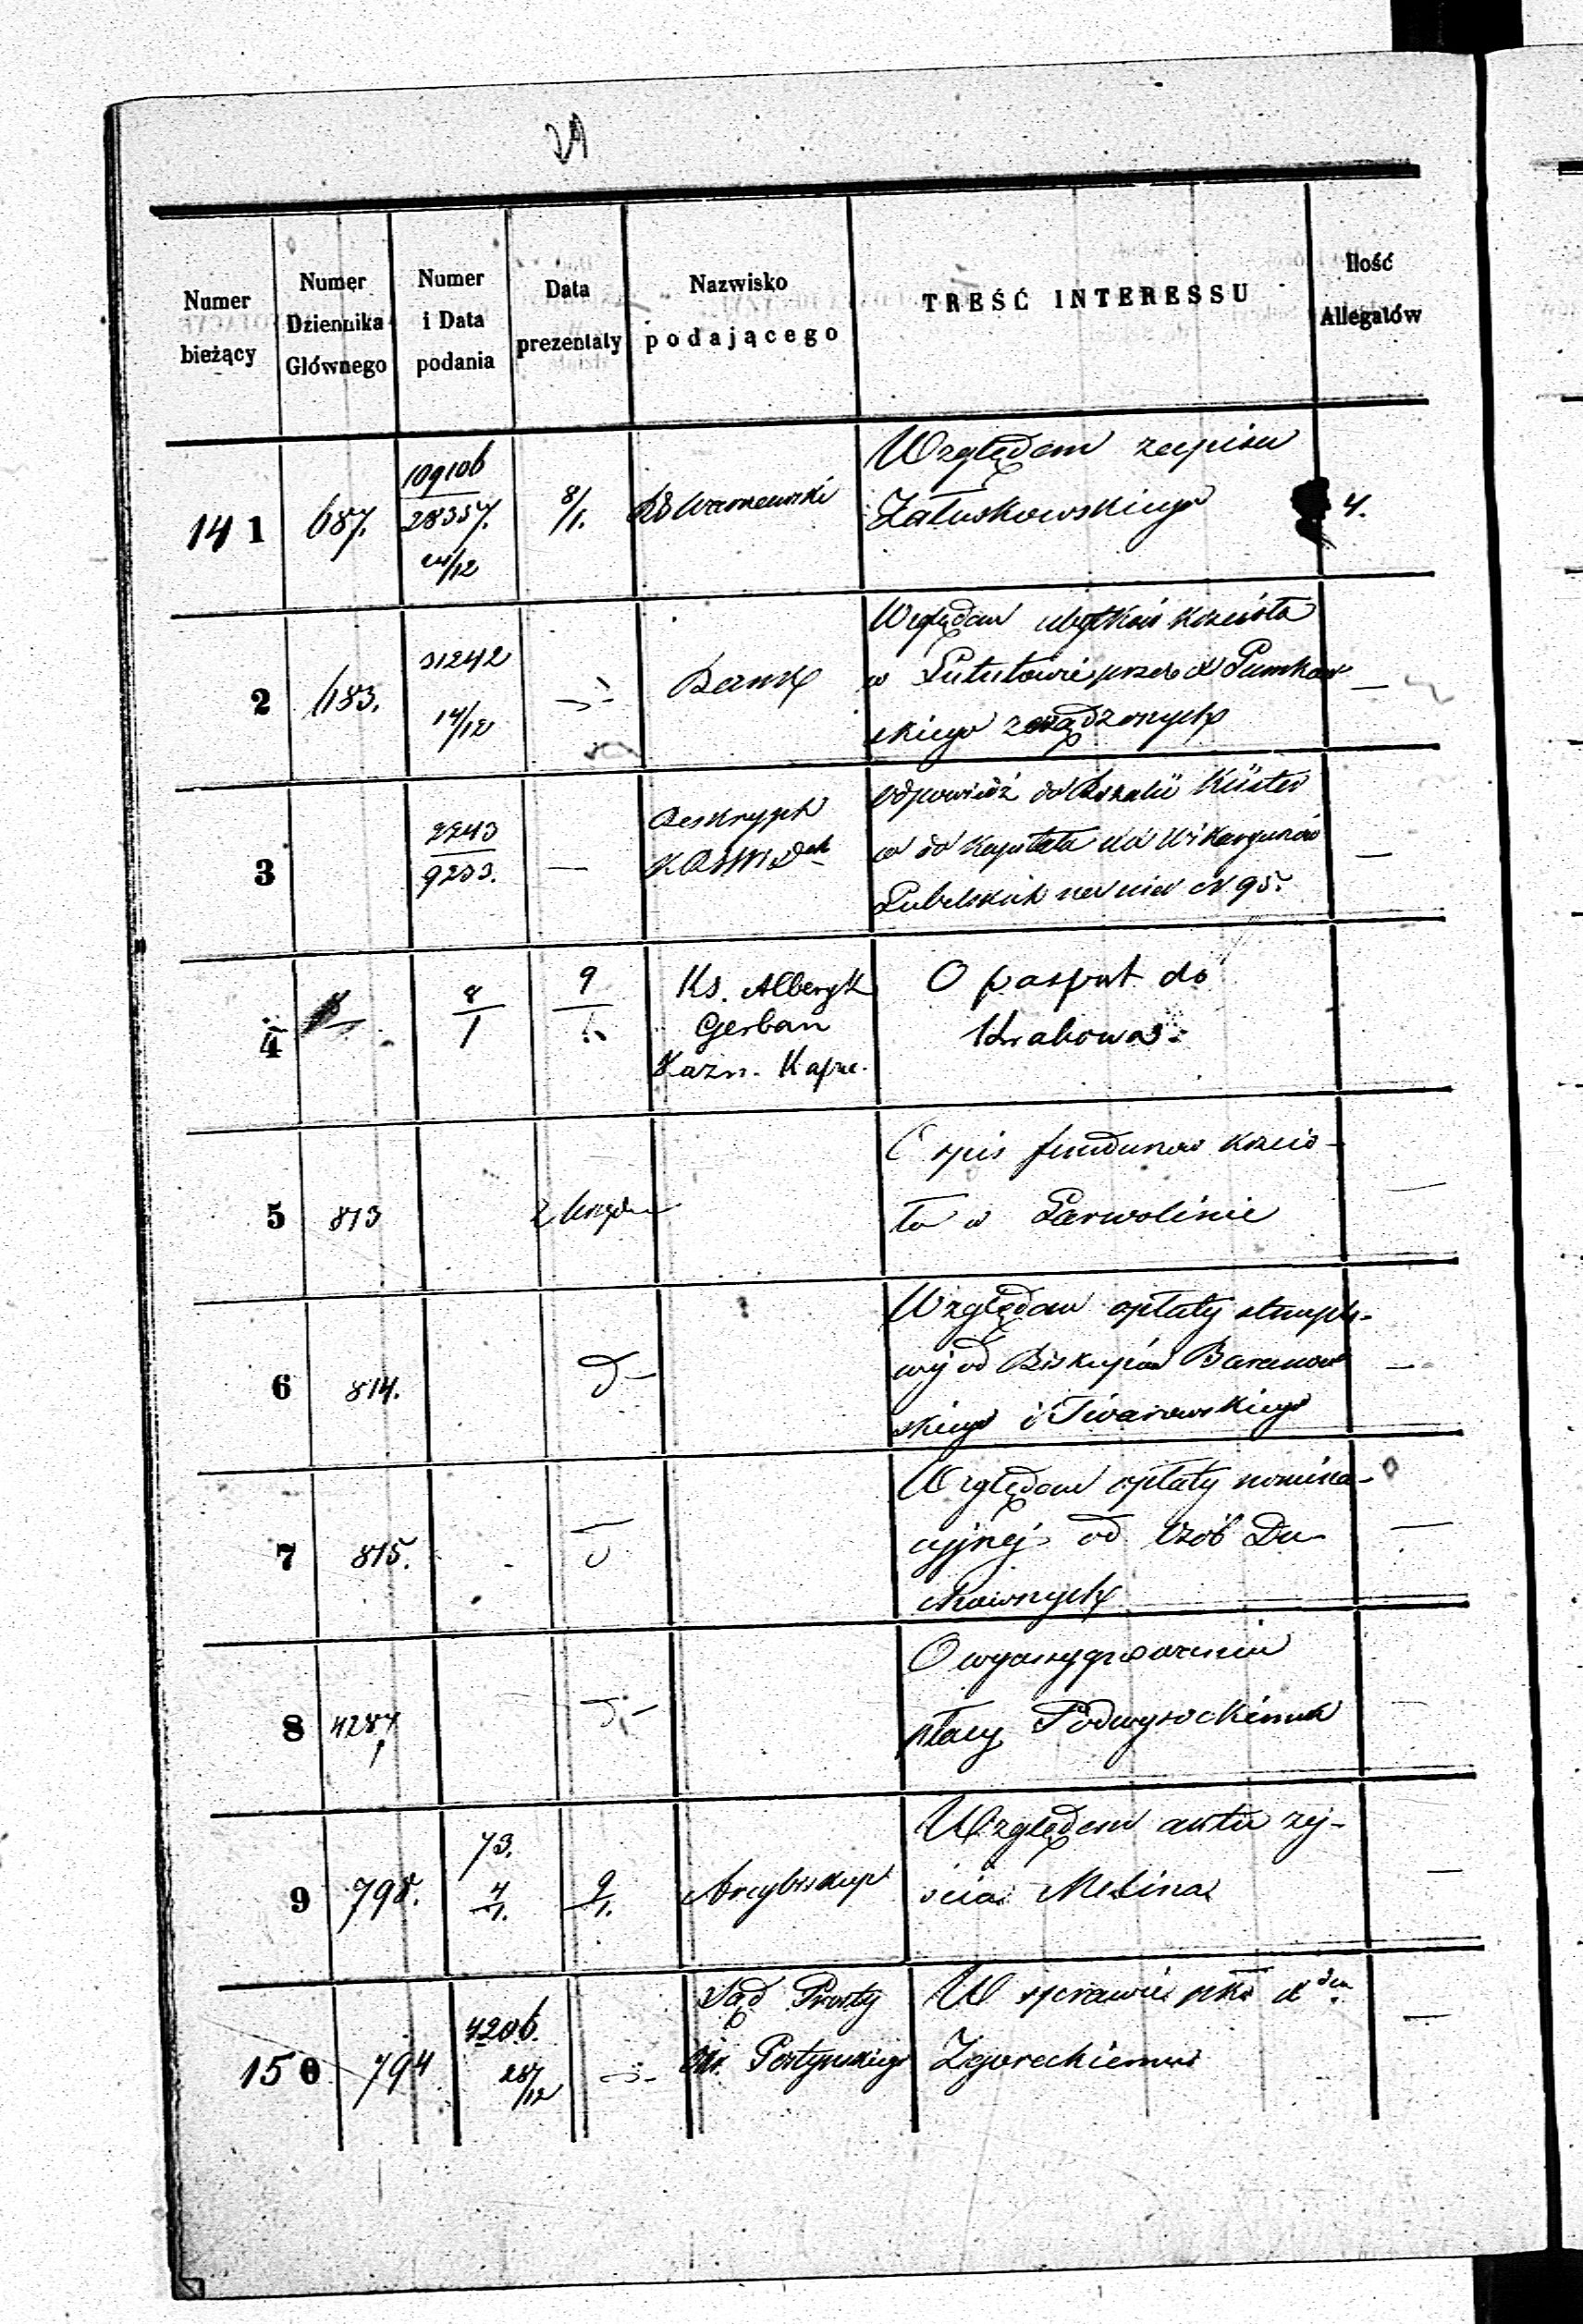 Numer bieżący
Numer Dziennika Głównego
Numer i Data podania
Data prezentaty
Nazwisko podającego
TREŚĆ INTERESSU
Ilość Allegatów
141
687.
109106
28357.
24/12
8/1.
Względem zapisu
Załuskowskiego
4.
2
683.
31242
14/12
Bank
Względem ubytków kościoła
w
skiego zarządzonych
—
3
2243
9233.
—
Reskrypt
Odpowiedź do Rozalii Küster
Lubelskich
N 95.
—
4
8
1
9
1.
Ks. Alberyk
Gerban
Kazn. Kapuc.
O pasport do
Krakowa.
5
813
z Urzędu
O spis funduszów kościo-
ła w Parwolinie
—
6
814.
D-
Względem opłaty stemplo-
wéj od Biskupów Baranow
skiego i Twarowskiego
—
7
815.
Względem opłaty nomina-
cyjnéj od osób Du-
chownych
—
8
4287
O wyassygnowaniu
płacy Podwysockiemu
—
9
798.
73.
4
1.
9
1.
Arcybiskup
Względem aktu zej-
ścia Melina
—
150
794
4206.
28/12
Sąd Prosty
Okr.
W sprawie pko
Zgoreckiemu
—